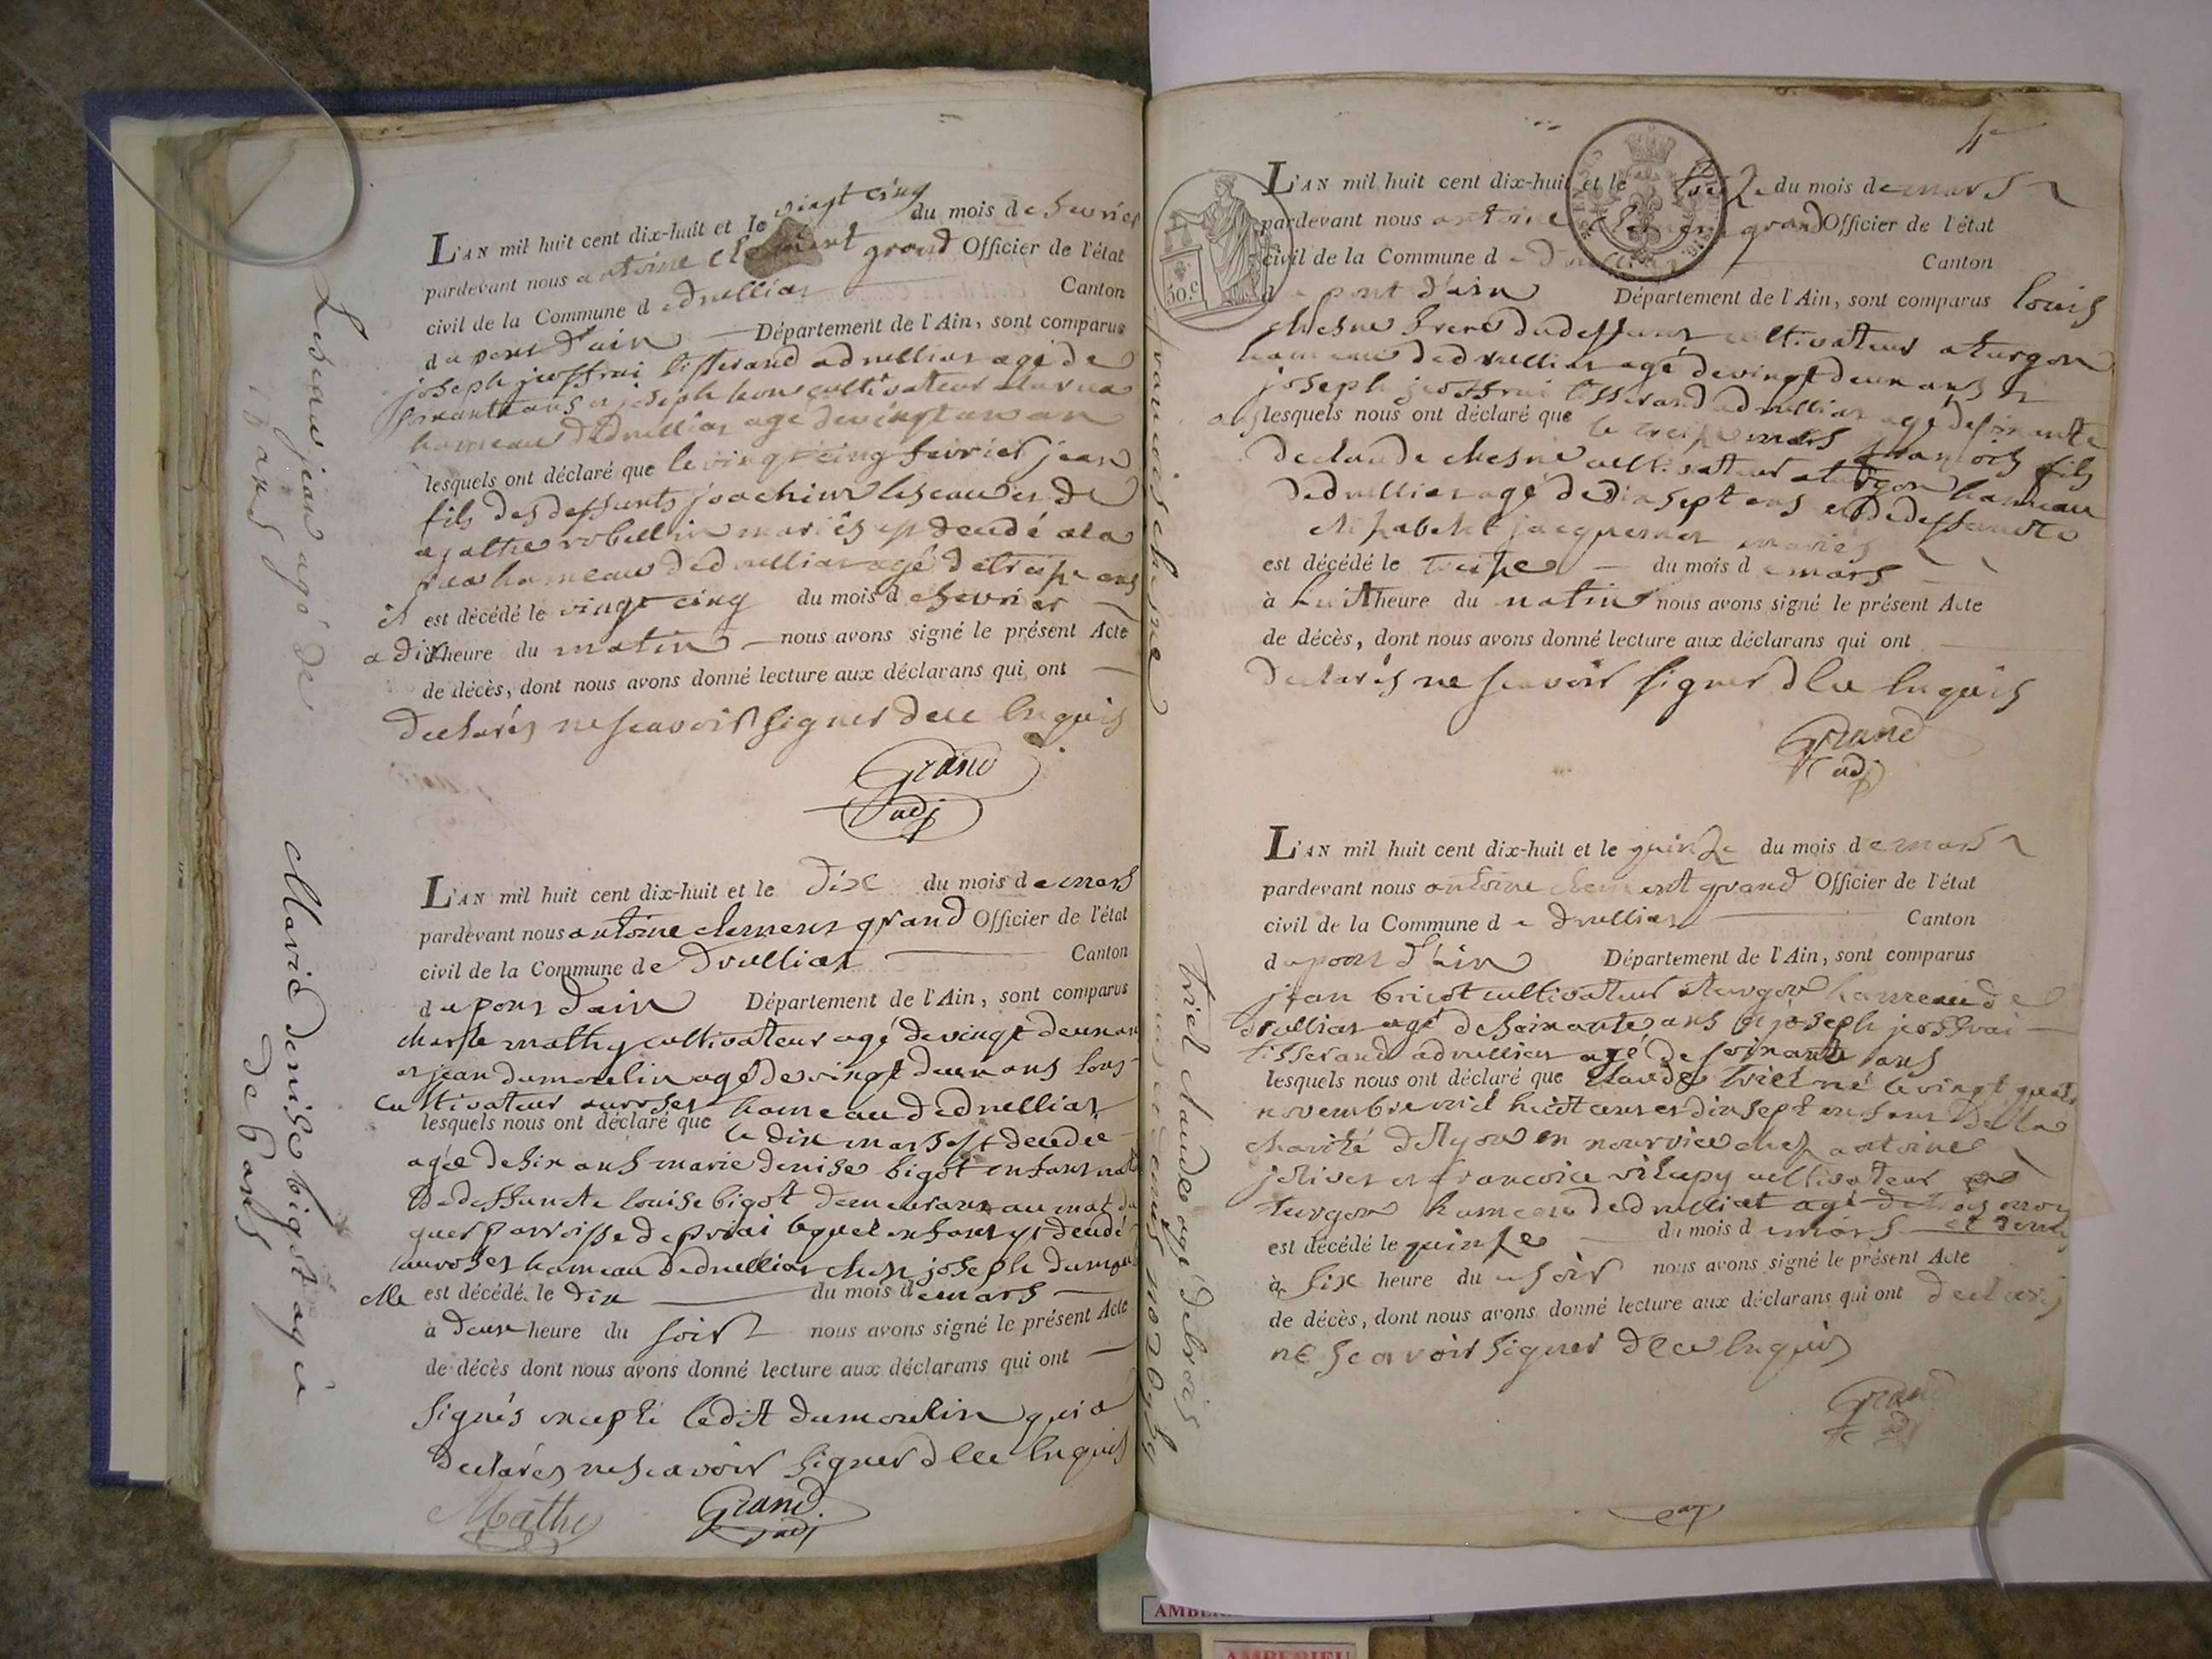 Leseau jean agé de
13 ans
L'AN mil huit cent dix-huit et le vingt cinq du mois de fevrier
pardevant nous antoine clement grand Officier de l'état
civil de la Commune de druillias Canton
du pont d'ain Département de l'Ain, sont comparus
joseph jeoffrai tisserand a druillias agé de
soixante ans et joseph cultivateur
hameau de druillias agé de vingt un an
lesquels ont déclaré que le vingt cinq fevrier jean
fils des deffunts joachim leseau et de
agathe robellin mariés est decedé a la
hameau de druillias agé de treize ans
il est décédé le vingt cinq du mois de fevrier
a dix heure du matin nous avons signé le présent Acte
de décès, dont nous avons donné lecture aux déclarans qui ont
declarés ne scavoir signer de ce enquis
Grand
adj
Marie denise bigot agée
de 6 ans
L'AN mil huit cent dix-huit et le dix du mois de mars
pardevant nous antoine clement grand Officier de l'état
civil de la Commune de druillias Canton
du pont dain Département de l'Ain, sont comparus
charle mathy cultivateur agé de vingt deux an
et jean dumoulin agé de vingt deux ans tous
cultivateur hameau de druillias
lesquels nous ont déclaré que le dix mars est decedée
agée de six ans marie denise bigot enfant nat
de deffuncte louise bigot demeurant au mat du
parroisse de priai lequel enfant est decedé
hameau de druillias chez joseph dumou
elle est décédé le dix du mois de mars
à deux heure du soir nous avons signé le présent Acte
de décès dont nous avons donné lecture aux déclarans qui ont
signés excepté ledit dumoulin qui a
declarés ne scavoir signer de ce enquis
Mathy Grand
adj
4e
francois chesne
L'AN mil huit cent dix-huit et le treize du mois de mars
pardevant nous antoine clement grand Officier de l'état
civil de la Commune de druillias Canton
du pont d'ain Département de l'Ain, sont comparus louis
chesne frere du deffunt cultivateur a turgon
hameau de druillias agé de vingt deux ans et
joseph jeoffrai tisserand a druillias agé de soixante
ans lesquels nous ont déclaré que le treize mars francois fils
de claude chesne cultivateur a turgon hameau
de druillias agé de dix sept ans et de deffuncte
elisabeht jacquemet mariés
est décédé le treize du mois de mars
à huit heure du matin nous avons signé le présent Acte
de décès, dont nous avons donné lecture aux déclarans qui ont
declarés ne scavoir signer de ce enquis
Grand
adj
50.c
triel claude agé de trois
L'AN mil huit cent dix-huit et le quinze du mois de mars
pardevant nous antoine clement grand Officier de l'état
civil de la Commune de druillias Canton
du pont d'ain Département de l'Ain, sont comparus
jean bricot cultivateur a turgon hameau de
druillias agé de soixante ans et joseph jeoffrai
tisserand a druillias agé de soixante ans
lesquels nous ont déclaré que claude triel né le vingt quatre
novembre mil huit cent et dix sept enfant de la
charité de lyon en nourrice chez antoine
jolivet et francoise cultivateur
turgon hameau de druillias agé de trois mois
et demi
est décédé le quinze du mois de mars
à six heure du soir nous avons signé le présent Acte
de décès, dont nous avons donné lecture aux déclarans qui ont declarés
ne scavoir signer de ce enquis
Grand
adj
AMBERIEU